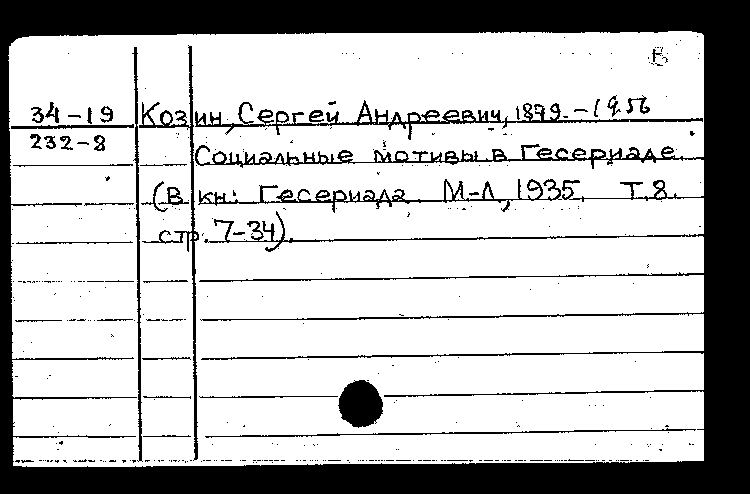 В
34-19 Козин, Сергей Андреевич, 1879.-1956
232-8
Социальные мотивы в Гесериаде.
(В кн: Гесериада. М-Л, 1935. Т.8.
стр. 7-34).